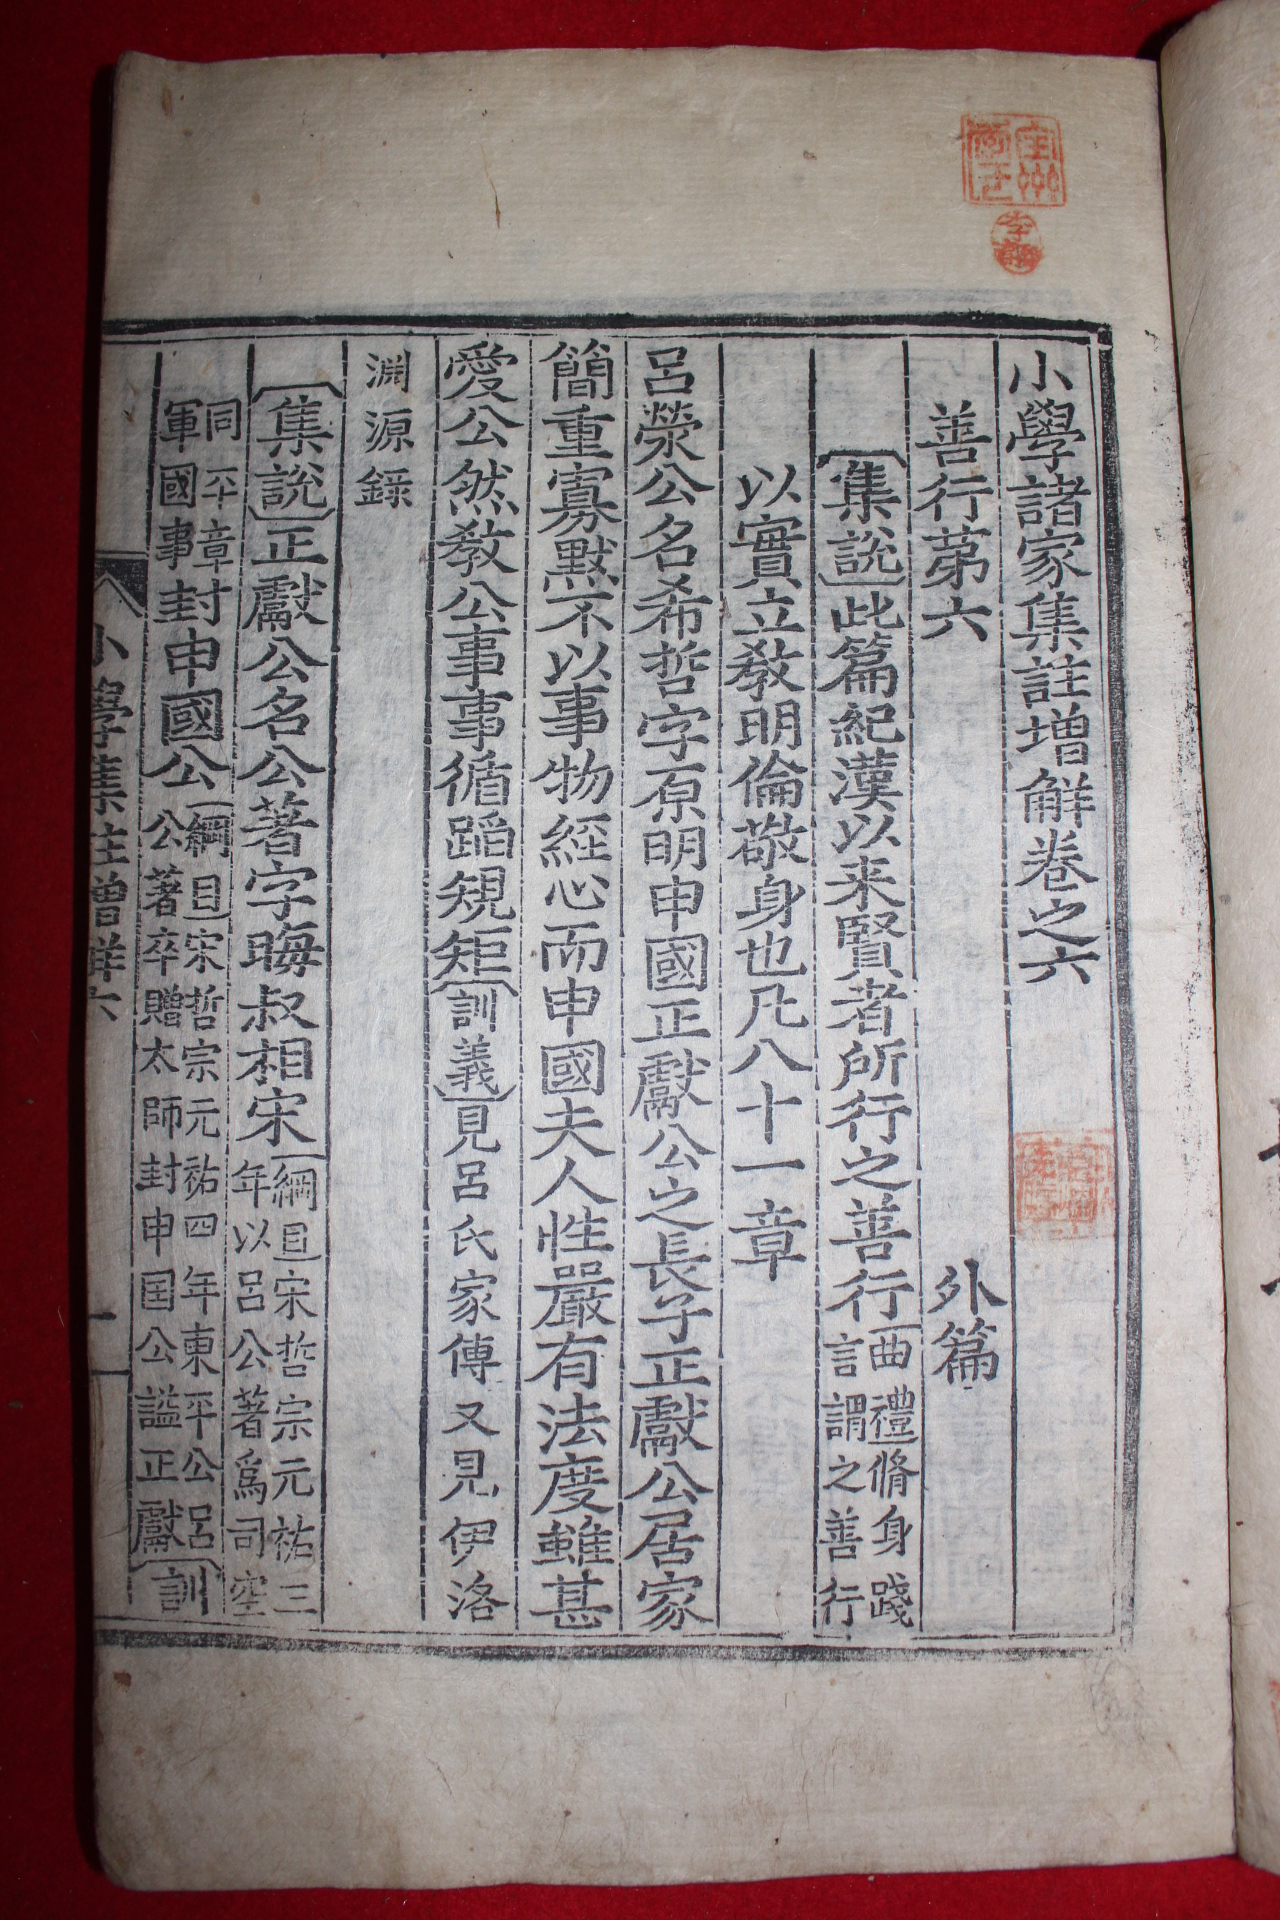 小學諸家集註增解卷之六
善行第六 外篇
集說 此篇紀漢以来賢者所行之善行 曲禮脩身踐
言謂之善行
以實立敎明倫敬身也凡八十一章
呂滎公名希哲字原明申國正獻公之長子正獻公居家
簡重寡黙不以事物經心而申國夫人性嚴有法度雖甚
愛公然敎公事事循蹈規矩 訓義 見呂氏家傳又見伊洛
淵源錄
集說 正獻公名公著字晦叔相宋 綱目 宋哲宗元祐三
年以呂公著爲司空
同平章
軍國事
封申國公 綱目 宋哲宗元祐四年東平公呂
公著卒贈太師封申国公謚正獻 訓
小學集註增解六 一